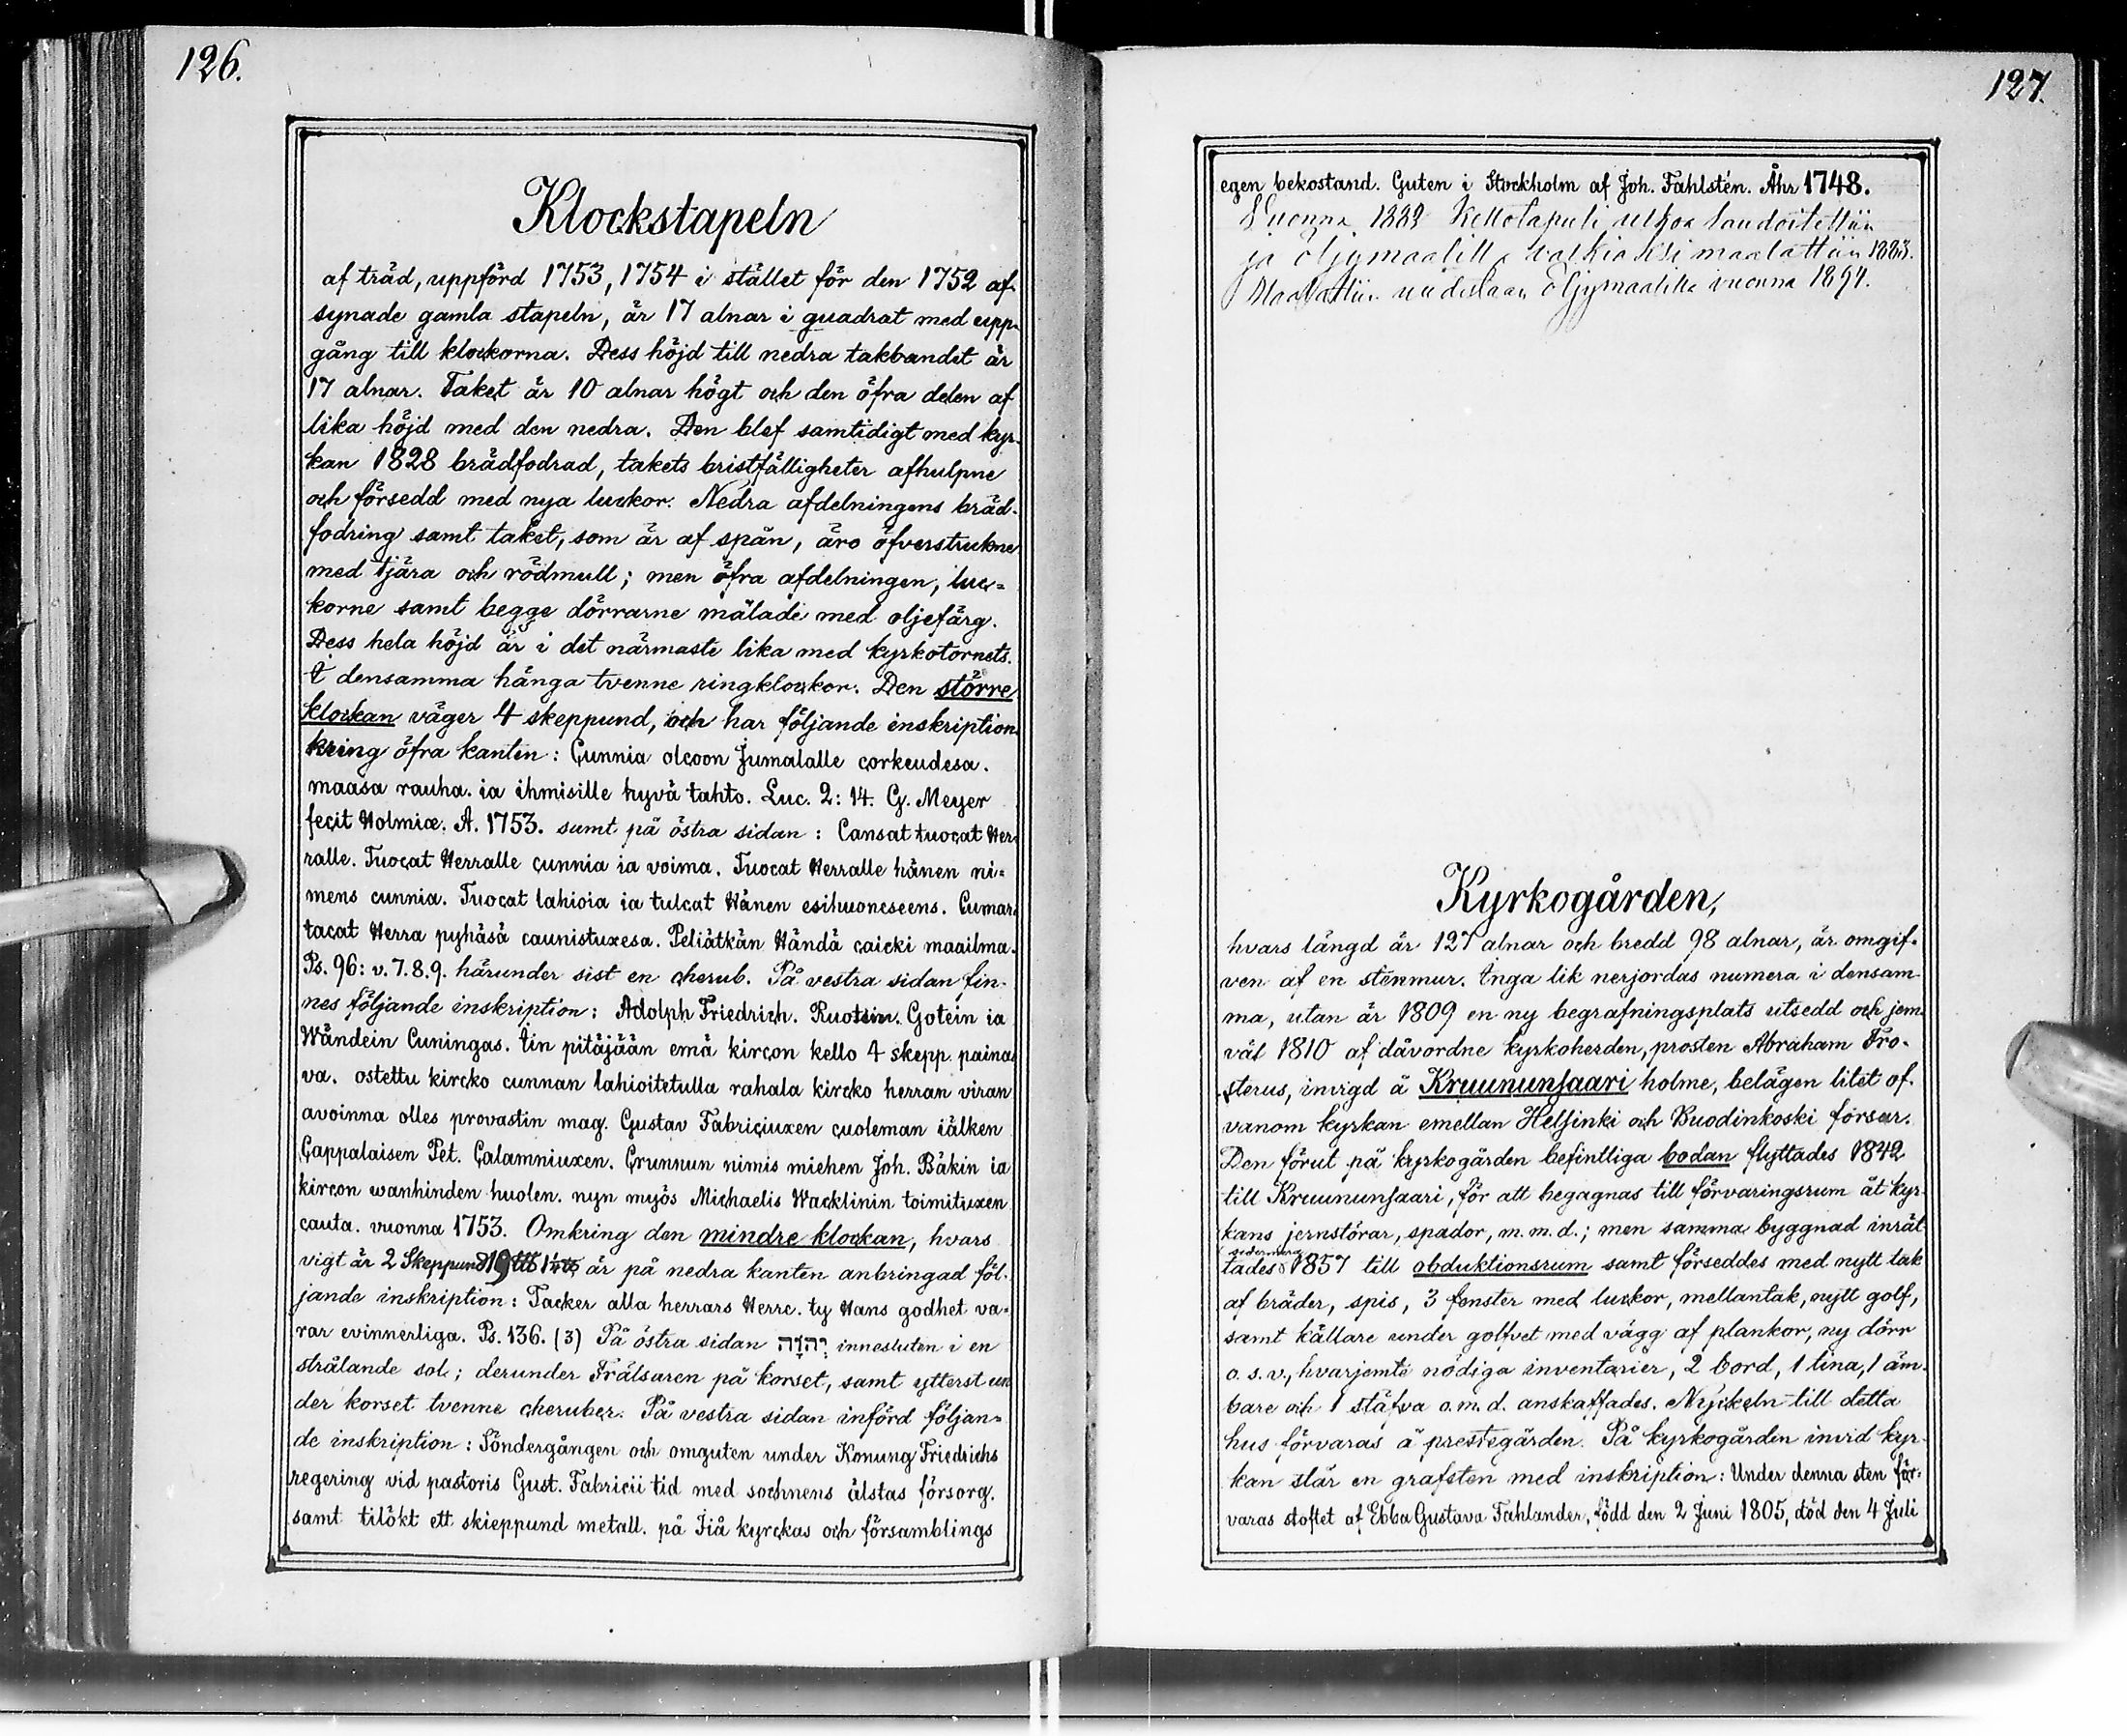 126.
Klockstapeln
af träd, uppförd 1753, 1754 i stället för den 1752 af-
synade gamla stapeln, är 17 alnar i quadrat med upp-
gång till klockorna. Dess höjd till nedra takbandet är
17 alnar. Taket är 10 alnar högt och den öfra delen af
lika höjd med den nedra. Den blef samtidigt med kyr-
kan 1828 brädfodrad, takets bristfälligheter afhulpne
och försedd med nya luckor. Nedra afdelningens bräd-
fodring samt taket, som är af spån, äro öfverstrukne
med tjära och rödmull; men öfra afdelningen, luc-
korne samt begge dörrarne målade med oljefärg.
Dess hela höjd är i det närmaste lika med kyrkotornets.
I densamma hänga tvenne ringklockor. Den större
klockan väger 4 skeppund, och har följande inskription
kring öfra kanten: Cunnia olcoon Jumalalle corkeudesa.
maasa rauha. ia ihmisille hyvä tahto. Luc. 2: 14. G. Meyer
fecit Holmiæ. A. 1753. samt på östra sidan: Cansat tuocat Her-
ralle. Tuocat Herralle cunnia ia voima. Tuocat Herralle hänen ni-
mens cunnia. Tuocat lahioia ia tulcat Hänen esihuoneseens. Cumar-
tacat Herra pyhäsä caunistuxesa. Peliätkän Händä caicki maailma.
Ps. 96: v. 7. 8. 9. härunder sist en cherub. På vestra sidan fin-
nes följande inskription: Adolph Friedrich. Ruotsin. Gotein ia
Wändein Cuningas. Iin pitäjään emä kircon kello 4 skepp. paina-
va. ostettu kircko cunnan lahioitetulla rahala kircko herran viran
avoinna olles provastin mag. Gustav Fabriciuxen cuoleman iälken
Cappalaisen Pet. Calamniuxen. Crunnun nimis miehen Joh. Bäkin ia
kircon wanhinden huolen. nyn myös Michaelis Wacklinin toimituxen
cauta. vuonna 1753. Omkring den mindre klockan, hvars
vigt är 2 Skeppund 19 är på nedra kanten anbringad föl-
jande inskription: Tacker alla herrars Herre. ty Hans godhet va-
rar evinnerliga. Ps. 136. (3) På östra sidan יְהוָה innesluten i en
strålande sol; derunder Frälsaren på korset, samt ytterst un
der korset tvenne cheruber. På vestra sidan införd följan-
de inskription: Söndergången och omguten under Konung Friedrichs
regering vid pastoris Gust. Fabricii tid med sochnens älstas försorg.
samt tilökt ett skieppund metall. på Jiå kyrckas och församblings
127.
egen bekostand. Guten i Stockholm af Joh. Fahlstén. Åhr 1748.
Vuonna 1882 Kellotapuli ulkoa laudoitettiin
ja öljymaalilla valkiaksi maalattiin 1883.
Maalattiin uudestaan Öljymaalilla vuonna 1894.
Kyrkogården,
hvars längd är 127 alnar och bredd 98 alnar, är omgif-
ven af en stenmur. Inga lik nerjordas numera i densam-
ma, utan är 1809 en ny begrafningsplats utsedd och jem-
väl 1810 af dåvordne kyrkoherden, prosten Abraham Fro-
sterus, invigd å Kruununsaari holme, belägen litet of-
vanom kyrkan emellan Helsinki och Ruodinkoski forsar.
Den förut på kyrkogården befintliga bodan flyttades 1842
till Kruununsaari, för att begagnas till förvaringsrum åt kyr-
kans jernstörar, spador, m. m. d.; men samma byggnad inrät
tades sedermera 1857 till obduktionsrum samt förseddes med nytt tak
af bräder, spis, 3 fenster med luckor, mellantak, nytt golf,
samt källare under golfvet med vägg af plankor, ny dörr
o. s. v., hvarjemte nödiga inventarier, 2 bord, 1 lina, 1 äm-
bare och 1 stäfva o. m. d. anskaffades. Nyckeln till detta
hus förvaras å prestegården. På kyrkogården invid kyr-
kan står en grafsten med inskription: Under denna sten för-
varas stoftet af Ebba Gustava Fahlander, född den 2 Juni 1805, död den 4 Juli